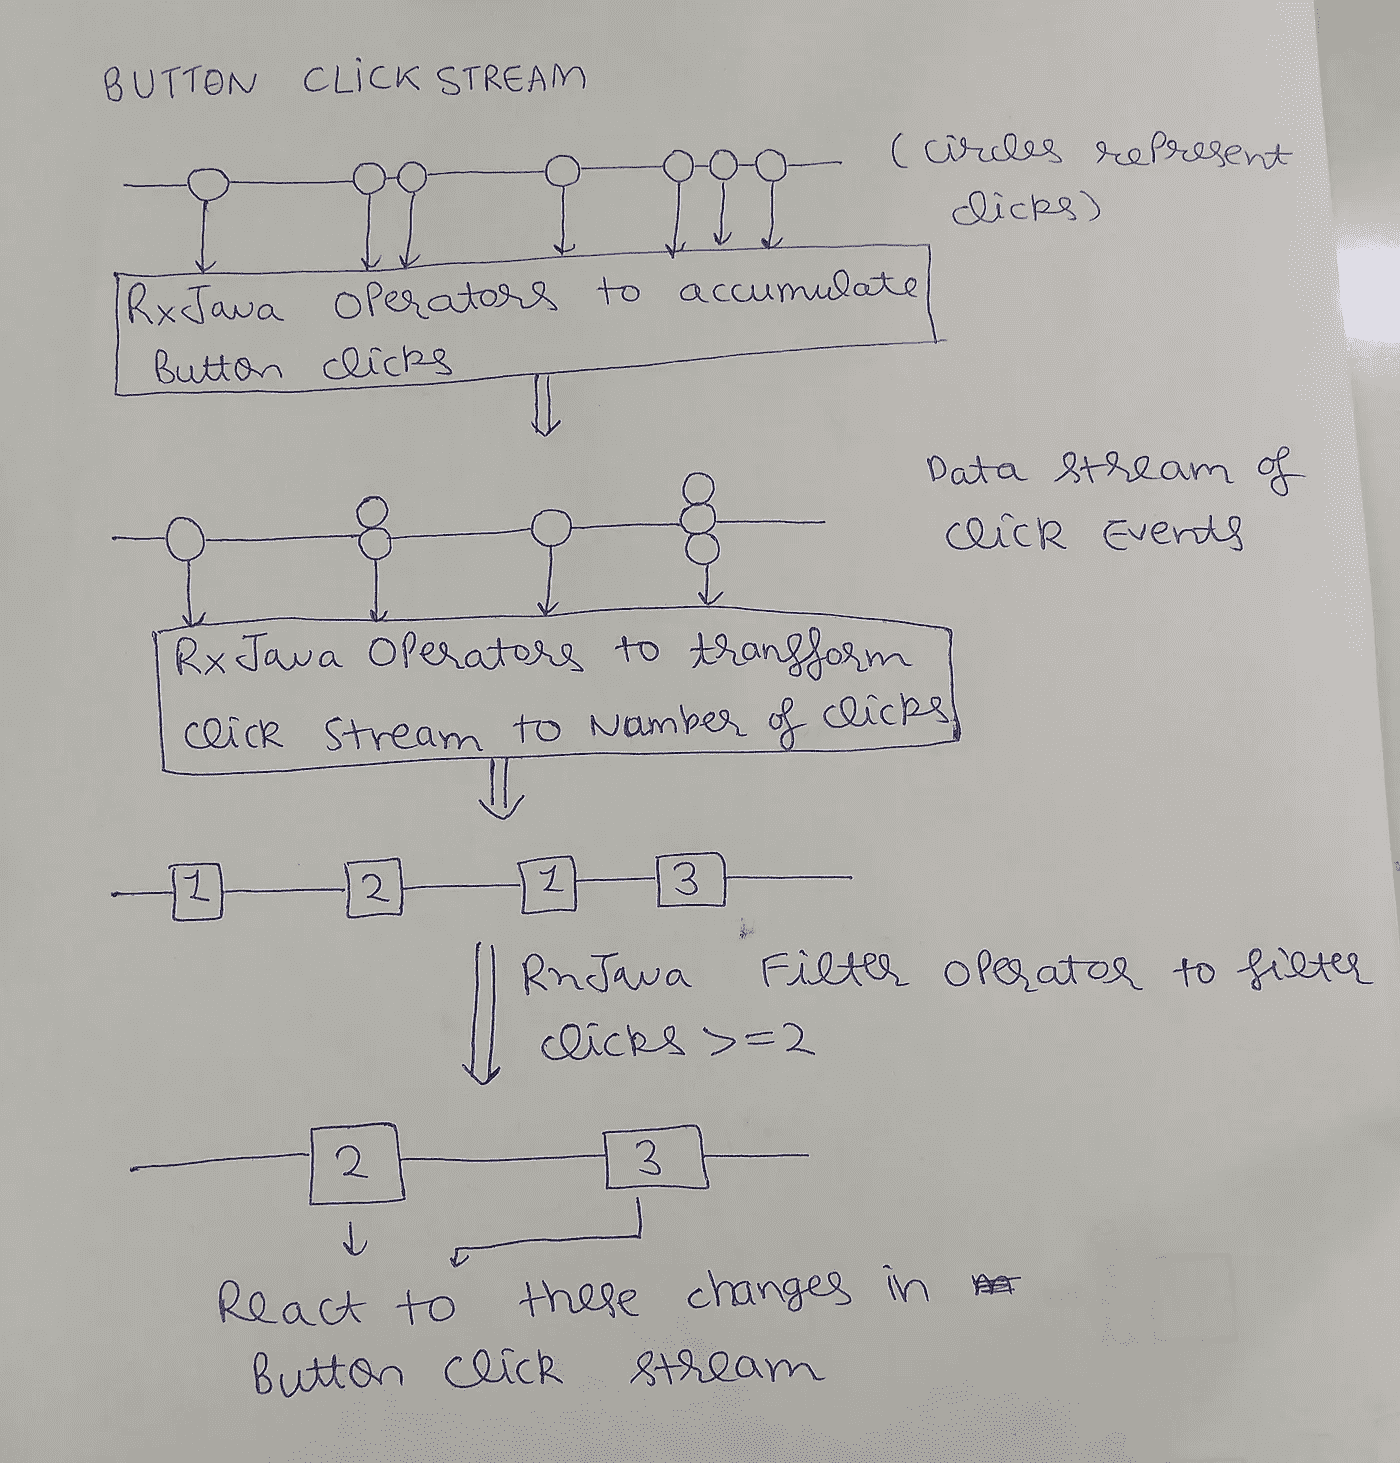 BUTTON CLICK STREAM
(circles represent
clicks)
RxJava operators to accumulate
Button clicks
Data stream of
click Events
RxJava Operators to transform
click stream to Number of clicks
1 2 1 3
RxJava Filter operator to filter
clicks >=2
2 3
React to these changes in
Button click stream